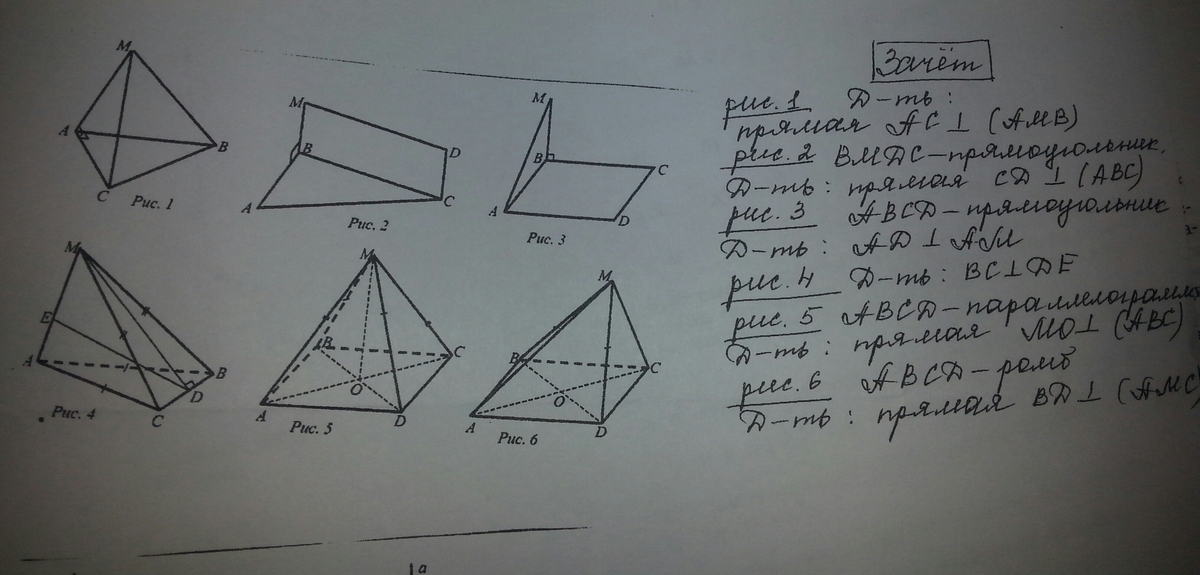 M
A
B
C
Рис. 1
M
B
D
A
C
Рис. 2
M
B
C
A
D
Рис. 3
M
E
A
B
D
C
Рис. 4
M
B
C
O
A
D
Рис. 5
M
B
C
O
A
D
Рис. 6
Зачёт
рис. 1 Д-ть :
прямая AC ⊥ (AMB)
рис. 2 BMDC – прямоугольник.
Д-ть : прямая CD ⊥ (ABC)
рис. 3 ABCD – прямоугольник
Д-ть : AD ⊥ AM
рис. 4 Д-ть : BC ⊥ DE
рис. 5 ABCD – параллелограмм
Д-ть : прямая MO ⊥ (ABC)
рис. 6 ABCD – ромб
Д-ть : прямая BD ⊥ (AMC)
a